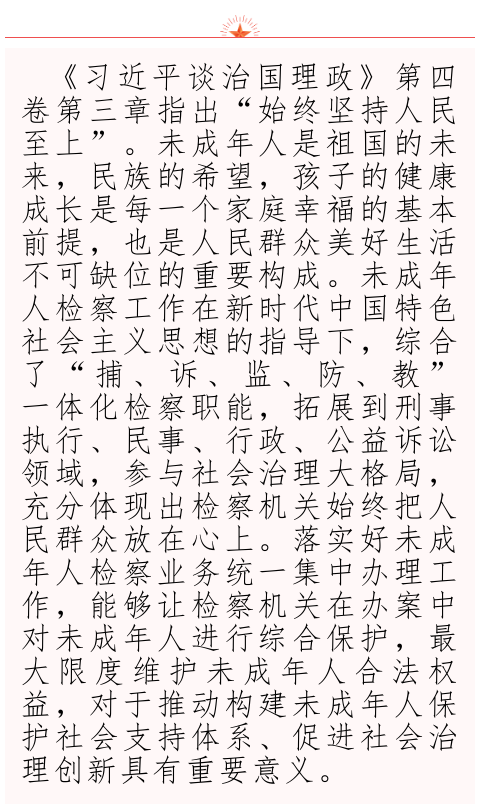 《习近平谈治国理政》第四
卷第三章指出“始终坚持人民
至上”。未成年人是祖国的未
来，民族的希望，孩子的健康
成长是每一个家庭幸福的基本
前提，也是人民群众美好生活
不可缺位的重要构成。未成年
人检察工作在新时代中国特色
社会主义思想的指导下，综合
了“捕、诉、监、防、教”
一体化检察职能，拓展到刑事
执行、民事、行政、公益诉讼
领域，参与社会治理大格局，
充分体现出检察机关始终把人
民群众放在心上。落实好未成
年人检察业务统一集中办理工
作，能够让检察机关在办案中
对未成年人进行综合保护，最
大限度维护未成年人合法权
益，对于推动构建未成年人保
护社会支持体系、促进社会治
理创新具有重要意义。